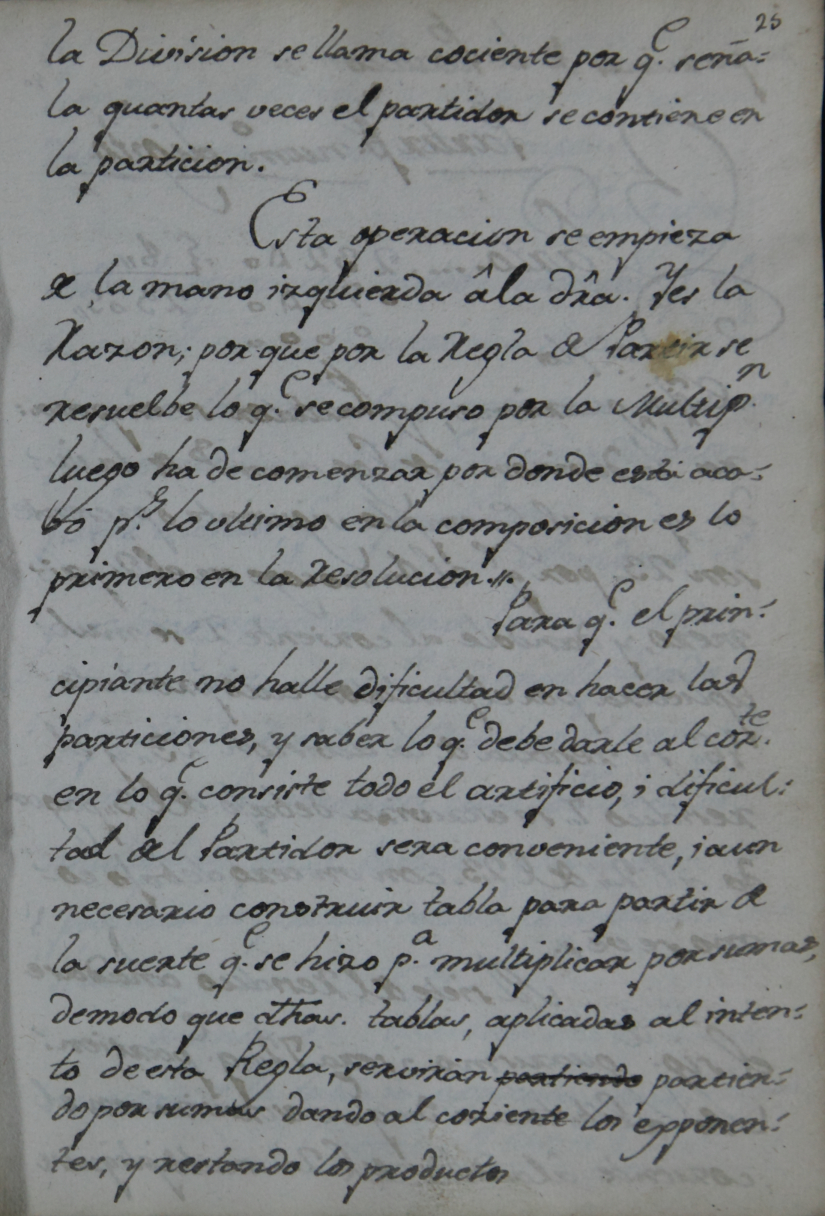 25
la Division se llama cociente por q.e seña-
la quantas veces el partidor se contiene en
la particion.
Esta operacion se empieza
de la mano izquierda â la dr̂a. Y es la
Razon; por que por la Regla de Partir se
resuelbe lo q.e se compuso por la Multip.n
luego ha de comenzar por donde esta aca-
bó p.s lo ultimo en la composicion es lo
primero en la Resolucion.
Para q.e el prin-
cipiante no halle dificultad en hacer las
particiones, y saber lo q.e debe darle al coz.te
en lo q.e consiste todo el artificio, i dificul-
tad del Partidor sera conveniente, i aun
necesario construir tabla para partir de
la suerte q.e se hizo p.a multiplicar por sumas,
demodo que dthas. tablas, aplicadas al inten-
to de esta Regla, servirán partiendo partien-
do por sumas dando al coziente los exponen-
tes, y restando los productos